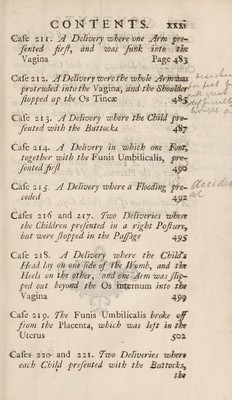 CONTENTS. xxxi
Caſe 211. A Delivery where one Arm pre-
ſented firſt, and was ſunk into the
Vagina Page 483
Caſe 212. A Delivery were the whole Arm was
protruded into the Vagina, and the Shoulder
ſtopped up the Os Tincæ 485
Caſe 213. A Delivery where the Child pre-
ſented with the Buttocks 487
Caſe 214. A Delivery in which one Foot,
together with the Funis Umbilicalis, pre-
ſented firſt 490
Caſe 215. A Delivery where a Flooding pre-
ceded 492
Caſes 216 and 217. Two Deliveries where
the Children preſented in a right Poſture,
but were ſtopped in the Paſſage 495
Caſe 218. A Delivery where the Child's
Head lay on one ſide of the Womb, and the
Heels on the other, and one Arm was ſlip-
ped out beyond the Os internum into the
Vagina 499
Caſe 219. The Funis Umbilicalis broke off
from the Placenta, which was left in the
Uterus 502
Caſes 220 and 221. Two Deliveries where
each Child preſented with the Buttocks,
the